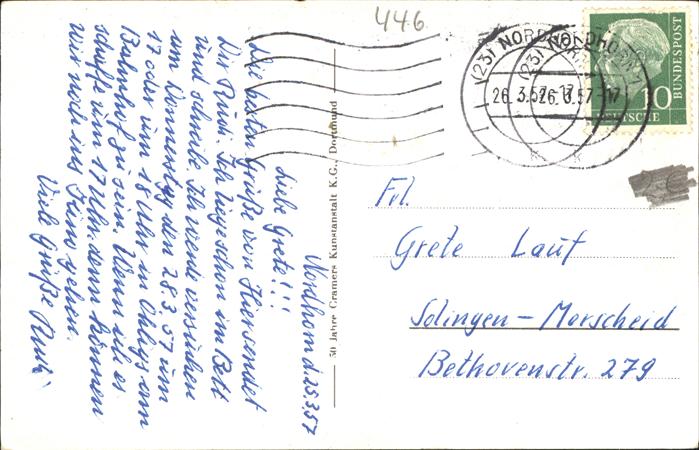 446.
(23) NORDHORN 1
26.3.57-17
(23) NORDHORN 1
26.3.57-17
k
k
10
DEUTSCHE
BUNDESPOST
Nordhorn d 25.3.57
Liebe Grete!!!
Die besten Grüße von Hier sendet
Dir Rudi. Ich liege schon im Bett
und schreibe. Ich werde versuchen
am Donnerstag den 28.3.57 um
17 oder um 18 Uhr in Ohligs am
Bahnhof zu sein. Wenn ich es
schaffe um 17 Uhr dann können
wir noch ins Kino gehen.
Viele Grüße Rudi
50 Jahre Cramers Kunstanstalt K.G., Dortmund
Frl.
Grete Lauf
Solingen – Merscheid
Bethovenstr. 279